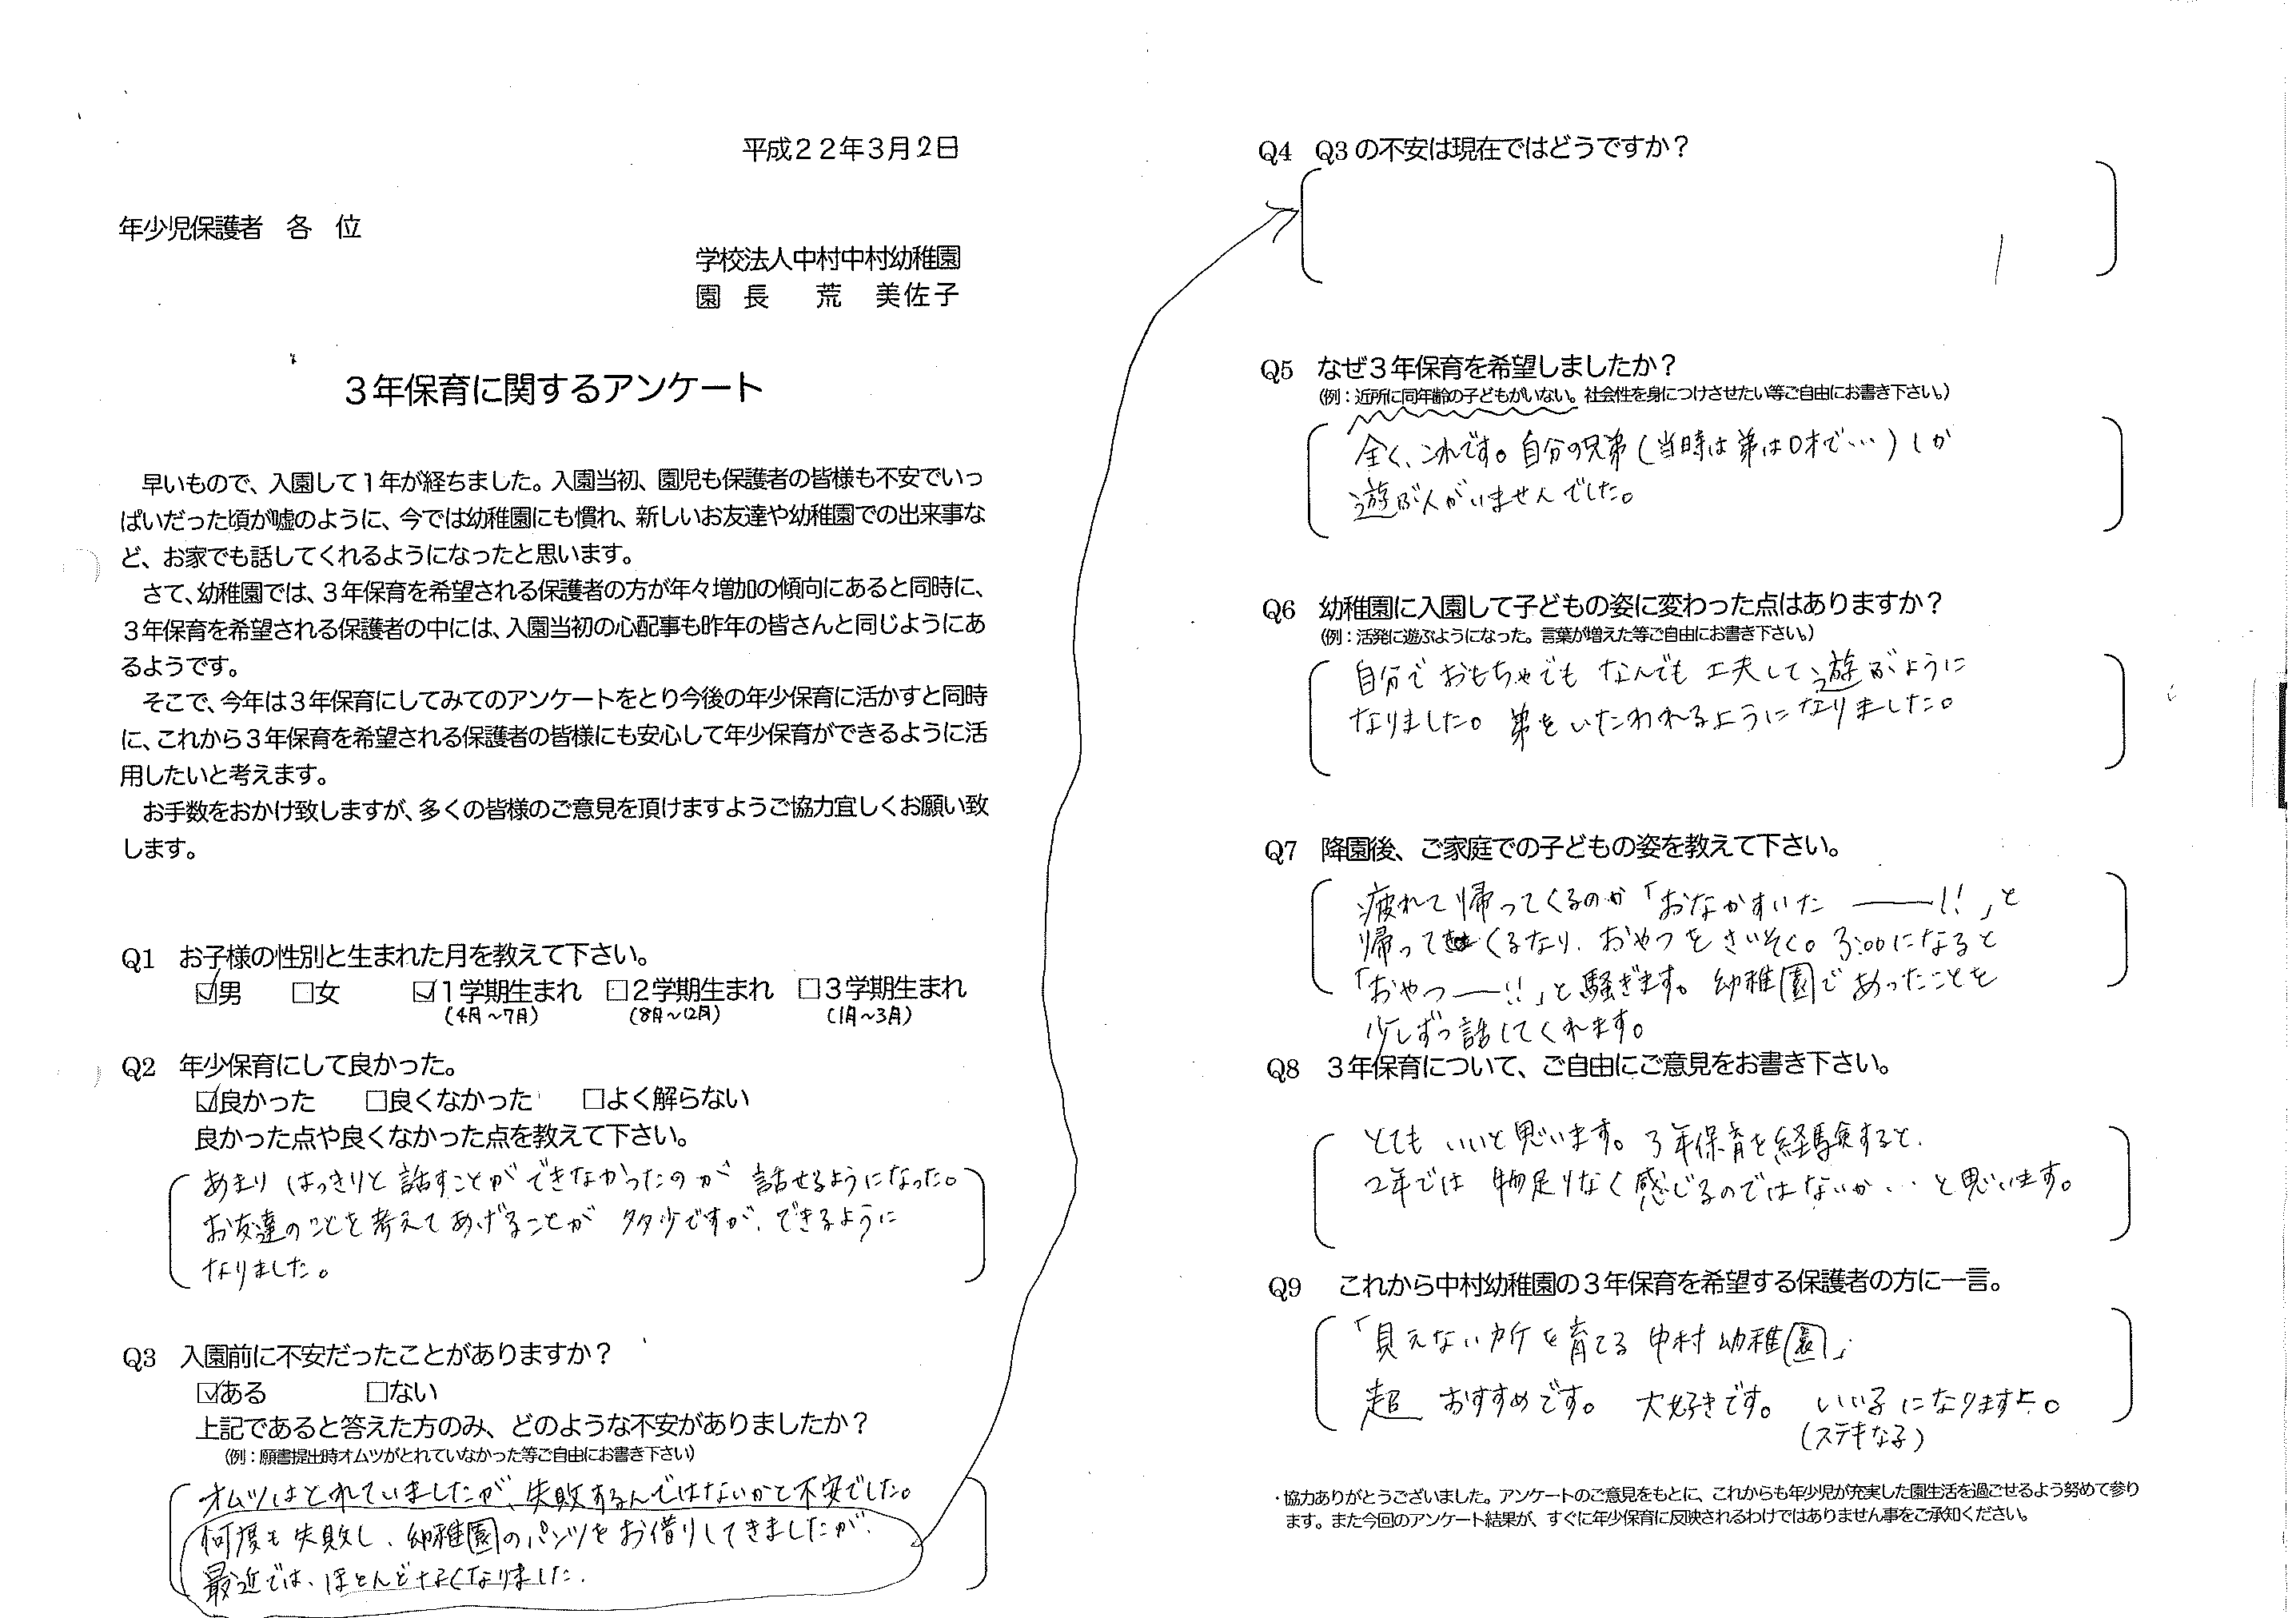 平成２２年３月２日
年少児保護者　各　位
学校法人中村中村幼稚園
園　長　　荒　美佐子
３年保育に関するアンケート
早いもので、入園して１年が経ちました。入園当初、園児も保護者の皆様も不安でいっ
ぱいだった頃が嘘のように、今では幼稚園にも慣れ、新しいお友達や幼稚園での出来事な
ど、お家でも話してくれるようになったと思います。
さて、幼稚園では、３年保育を希望される保護者の方が年々増加の傾向にあると同時に、
３年保育を希望される保護者の中には、入園当初の心配事も昨年の皆さんと同じようにあ
るようです。
そこで、今年は３年保育にしてみてのアンケートをとり今後の年少保育に活かすと同時
に、これから３年保育を希望される保護者の皆様にも安心して年少保育ができるように活
用したいと考えます。
お手数をおかけ致しますが、多くの皆様のご意見を頂けますようご協力宜しくお願い致
します。
Q1　お子様の性別と生まれた月を教えて下さい。
☑男　□女　☑１学期生まれ　□２学期生まれ　□３学期生まれ
(4月～7月)　(8月～12月)　(1月～3月)
Q2　年少保育にして良かった。
☑良かった　□良くなかった　□よく解らない
良かった点や良くなかった点を教えて下さい。
あまり はっきりと 話すことが できなかったのが 話せるようになった。
お友達のことを考えて あげることが 多少ですが、できるように
なりました。
Q3　入園前に不安だったことがありますか？
☑ある　□ない
上記であると答えた方のみ、どのような不安がありましたか？
（例：願書提出時オムツがとれていなかった等ご自由にお書き下さい）
オムツはとれていましたが、失敗するんではないかと不安でした。
何度も失敗し、幼稚園のパンツをお借りしてきましたが、
最近では、ほとんどなくなりました.
Q4　Q3の不安は現在ではどうですか？
Q5　なぜ３年保育を希望しましたか？
（例：近所に同年齢の子どもがいない。社会性を身につけさせたい等ご自由にお書き下さい。）
全く、これです。自分の兄弟(当時は弟は0才で…)しか
遊ぶ人がいませんでした。
Q6　幼稚園に入園して子どもの姿に変わった点はありますか？
（例：活発に遊ぶようになった。言葉が増えた等ご自由にお書き下さい。）
自分で おもちゃでも なんでも 工夫して 遊ぶように
なりました。弟をいたわれるようになりました。
Q7　降園後、ご家庭での子どもの姿を教えて下さい。
疲れて帰ってくるのか「おなかすいた――!!」と
帰ってくるなり、おやつをさいそく。3:00になると
「おやつ―!!」と騒ぎます。幼稚園であったことを
少しずつ話してくれます。
Q8　３年保育について、ご自由にご意見をお書き下さい。
とても いいと思います。3年保育を経験すると、
2年では 物足りなく感じるのではないか…と思います。
Q9　これから中村幼稚園の３年保育を希望する保護者の方に一言。
「見えない所を育てる 中村幼稚園」
超 おすすめです。 大好きです。 いい子になりますよ。
(ステキな子)
・協力ありがとうございました。アンケートのご意見をもとに、これからも年少児が充実した園生活を過ごせるよう努めて参り
ます。また今回のアンケート結果が、すぐに年少保育に反映されるわけではありません事をご承知ください。